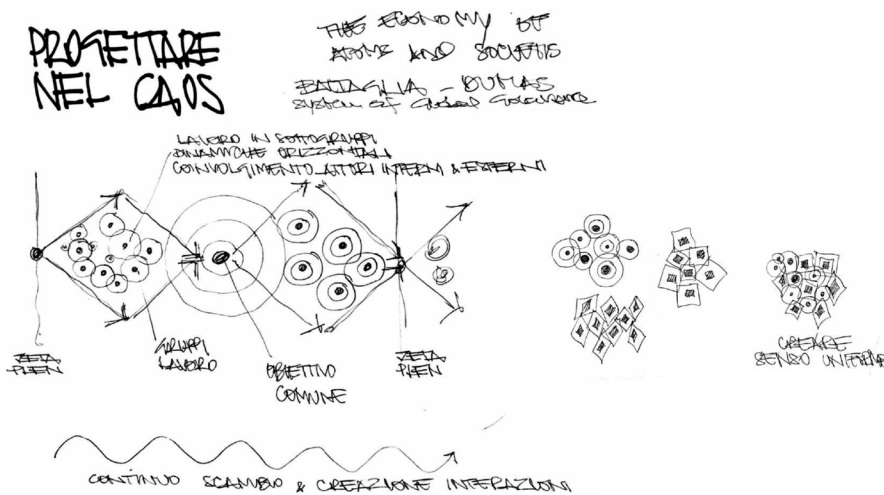 PROGETTARE
NEL CAOS
THE ECONOMY OF
ATOMS AND SOCIETIS
BATTAGLIA - DUMAS
System of Global Governance
LAVORO IN SOTTOGRUPPI
DINAMICHE ORIZZONTALI
COINVOLGIMENTO ATTORI INTERNI & ESTERNI
GRUPPI
LAVORO
OBIETTIVO
COMUNE
ZETA
PLEN
ZETA
PLEN
CREARE
SENSO UNIFORME
CONTINUO SCAMBIO & CREAZIONE INTERAZIONI